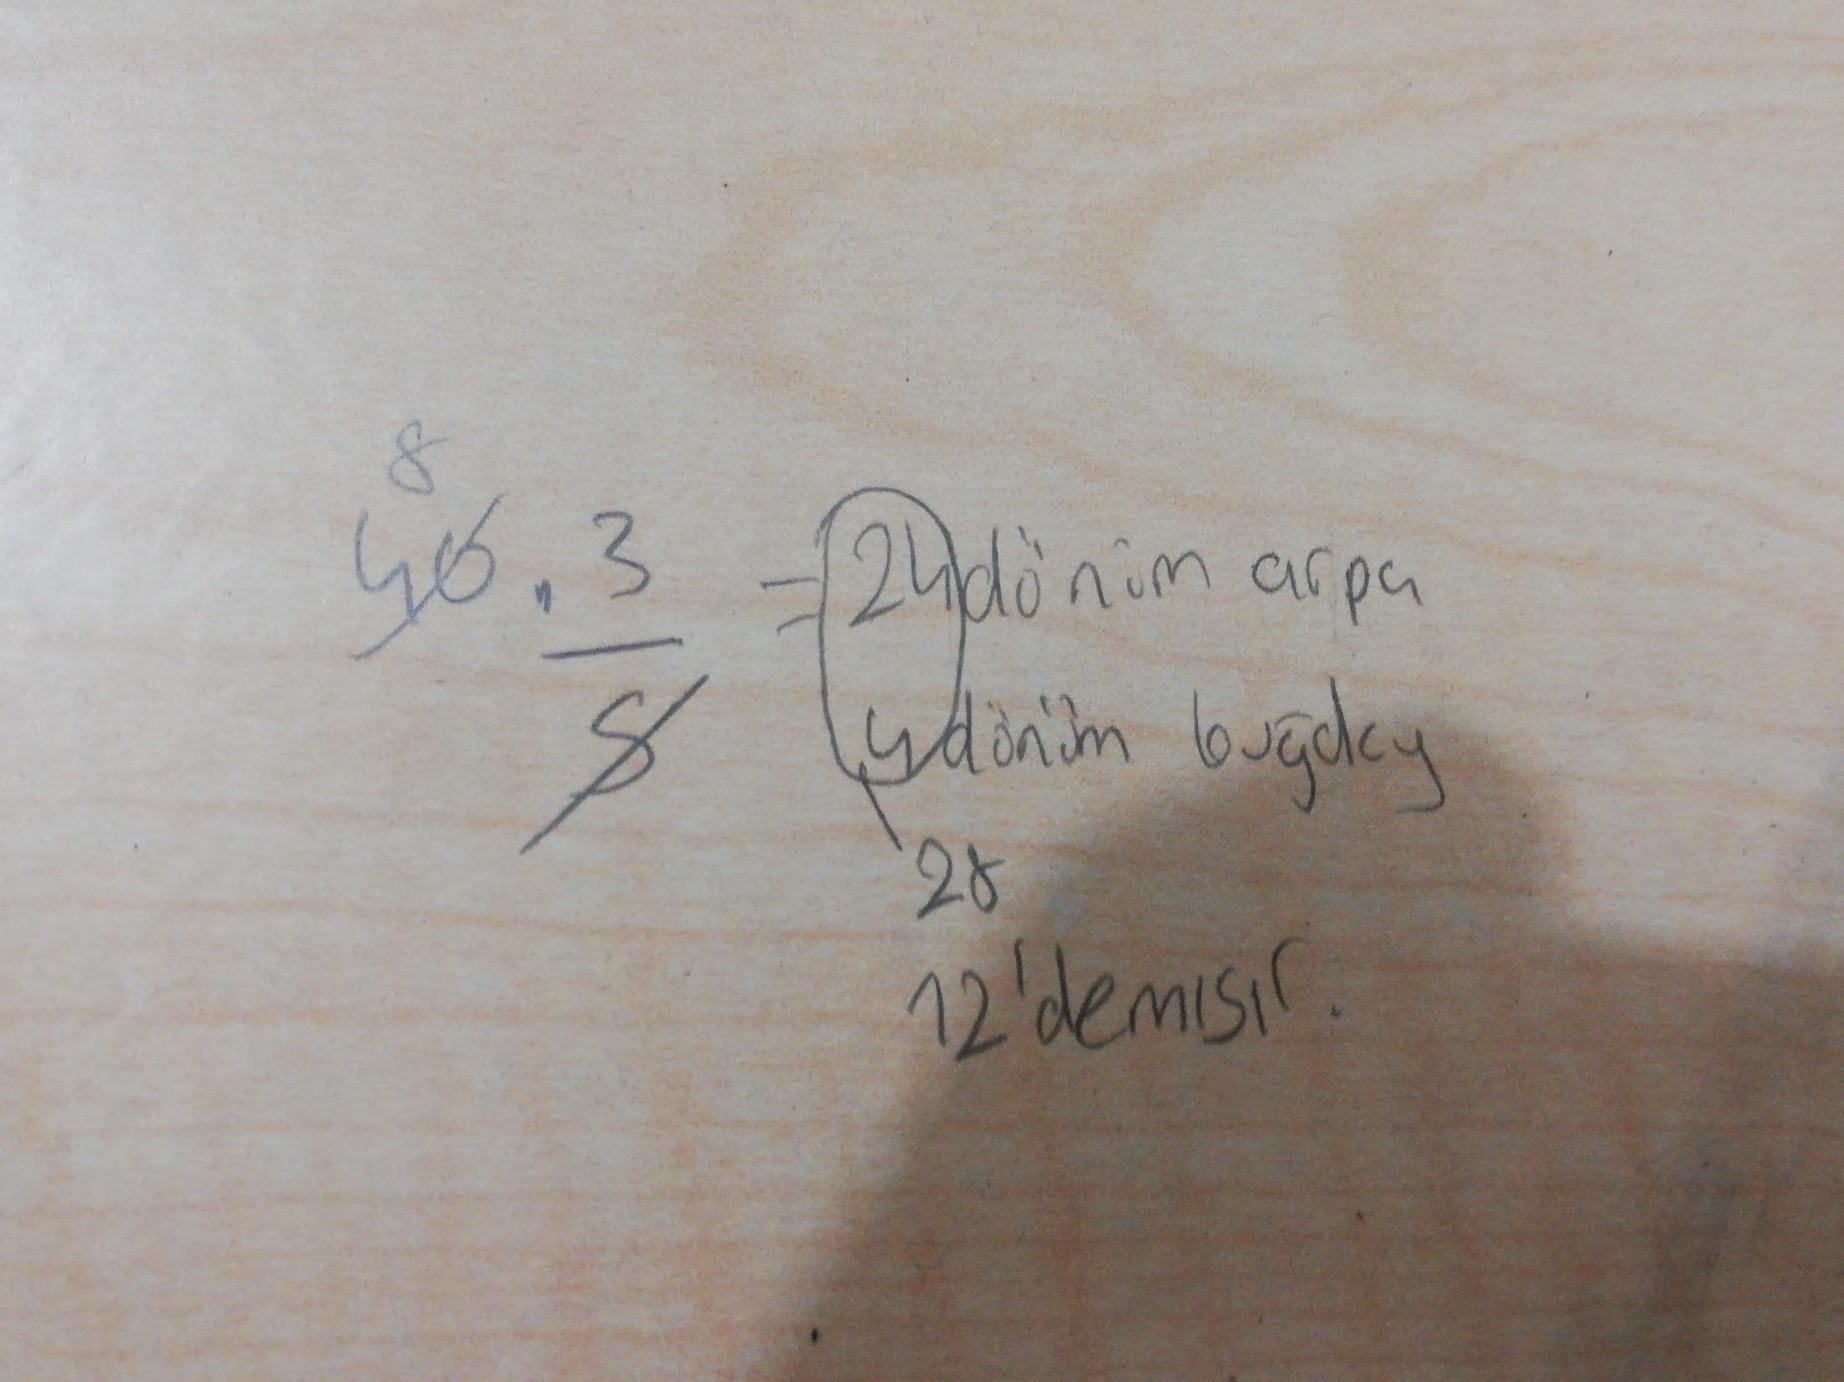 8
40 . 3 = 24 dönüm arpa
5
4 dönüm buğday
28
12'de mısır.